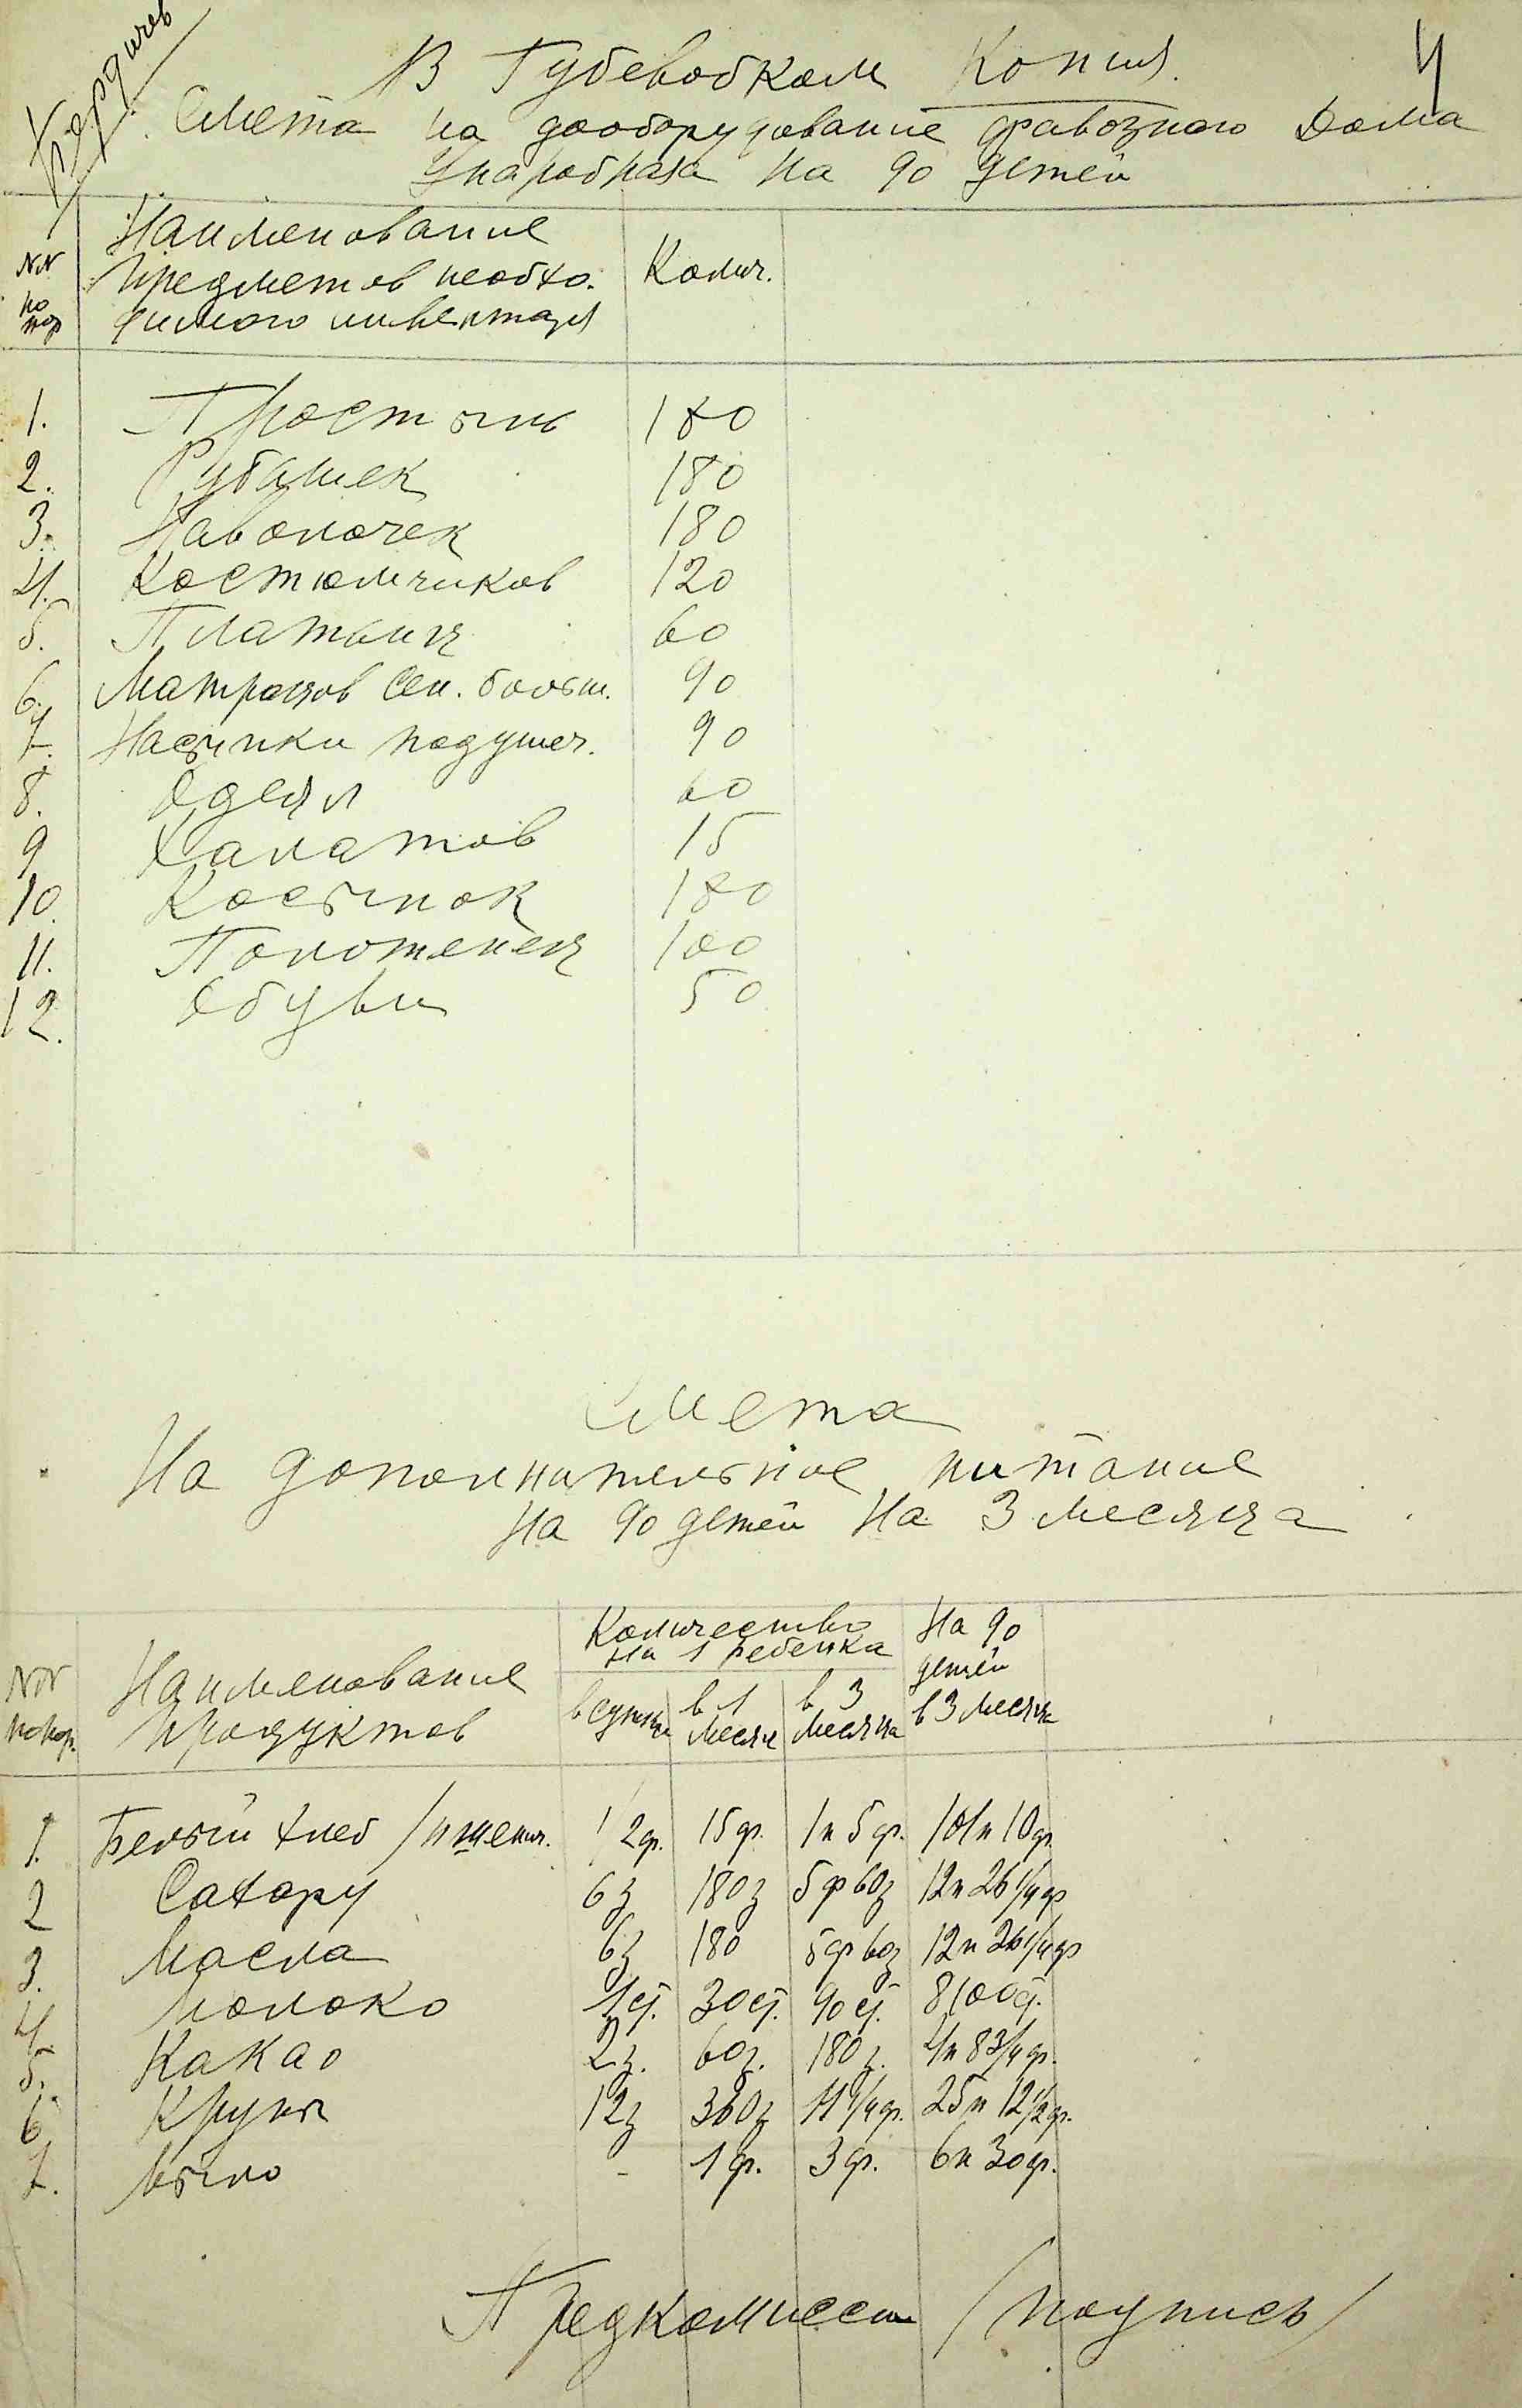 Бердичев
В Губевобком Копия. 4
Смета на дооборудование фавозного Дома
Унаробраза на 90 детей
NN по пор Наименование предметов необхо-димого инвентаря Колич.
1. Простынь 180
2. Рубашек 180
3. Наволочек 180
4. Костюмчиков 120
5. Платьиц 60
6. Матрацов Сен. больш. 90
7. Насыпки подушеч. 90
8. Одеял 60
9 Халатов 15
10. Косынок 180
11. Полотенец 100
12. Обуви 50
Смета
На дополнительное питание
на 90 детей на 3 месяца
NN по пор. Наименование продуктов Количество на 1 ребенка На 90 детей в 3 месяца
в сутки в 1 месяц в 3 месяца
1. Белый хлеб /пшенич. 1/2 ф. 15 ф. 1 п 5 ф. 101 п 10 ф.
2 Сахару 6 з 180 з 5 ф 60 з 12 п 26 1/4 ф
3. Масла 6 з 180 5 ф 60 з 12 п 26 1/4 ф
4 Молоко 1 ст. 30 ст. 90 ст. 8100 ст.
5. Какао 2 з. 60 з. 180 з. 4 п 8 3/4 ф.
6 Крупы 12 з 360 з 11 1/4 ф. 25 п 12 1/2 ф.
7. Мыло - 1 ф. 3 ф. 6 п 30 ф.
Предкомиссии /подпись/